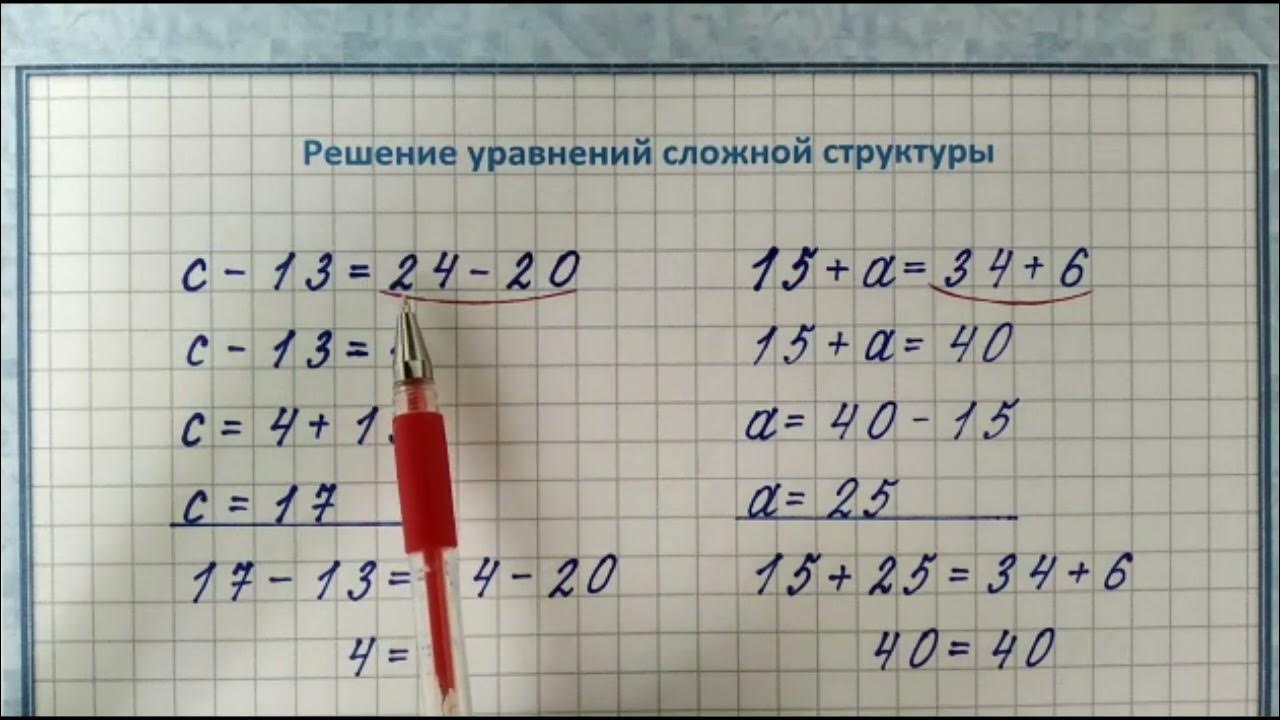 Решение уравнений сложной структуры
с - 13 = 24 - 20
с - 13 =
с = 4 + 1
с = 17
17 - 13 = 4 - 20
4 =
15 + а = 34 + 6
15 + а = 40
а = 40 - 15
а = 25
15 + 25 = 34 + 6
40 = 40